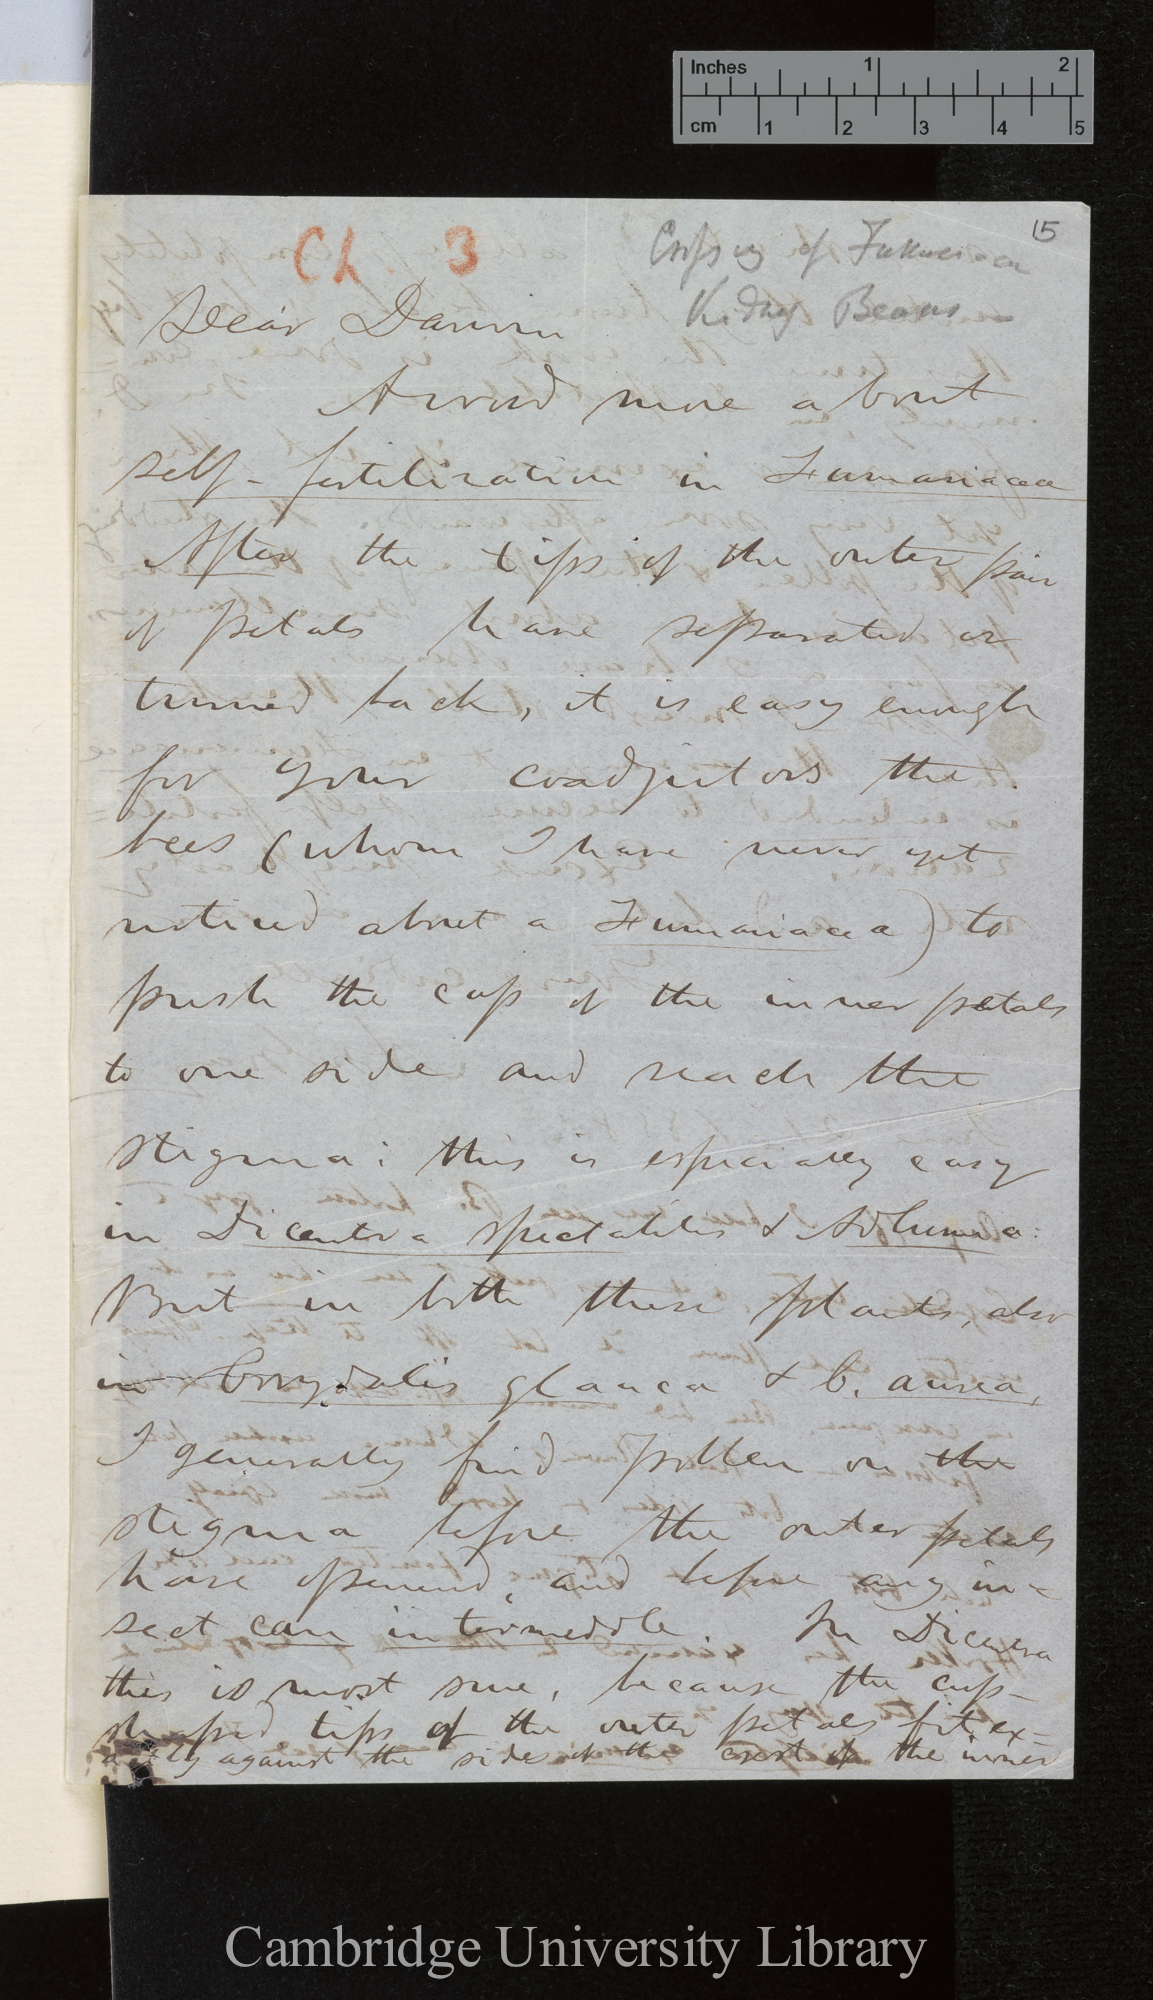 Inches 1 2
cm 1 2 3 4 5
15
Ch. 3
Crossing of Fumariaceæ
Kidney Beans
Dear Darwin
A word more about
self-fertilization in Fumariaceæ
After the tips of the outer pair
of petals have separated or
turned back, it is easy enough
for your coadjutors the
bees (whom I have never yet
noticed about a Fumariacea) to
push the cap of the inner petals
to one side and reach the
stigma: this is especially easy
in Dicentra spectabilis & Adlumia:
But in both these plants, also
in Corydalis glauca & C. aurea,
I generally find pollen on the
stigma before the outer petals
have opened, and before any in-
sect can intermeddle. In Dicentra
this is most sure, because the cup-
shaped tips of the outer petals fit ex-
actly against the sides of the crest of the inner
Cambridge University Library